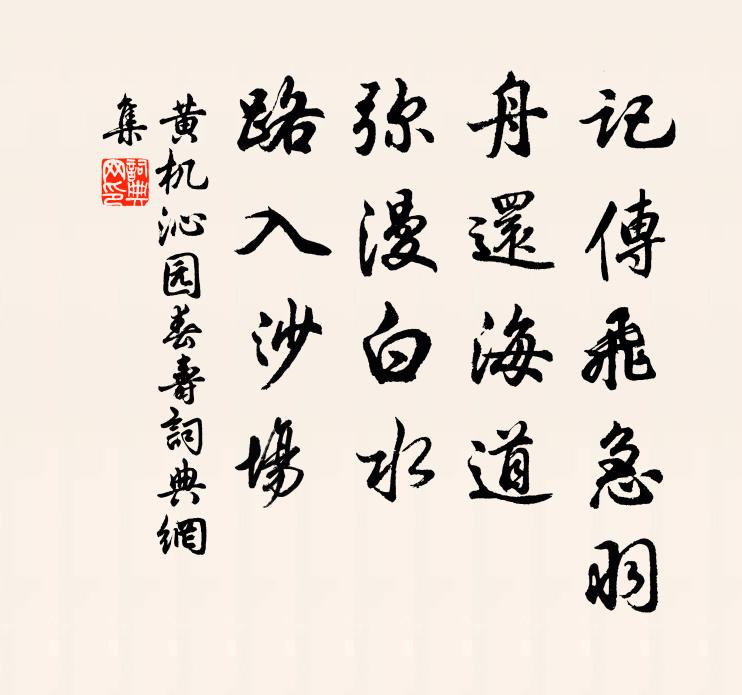 記傳飛急羽
舟還海道
弥漫白水
路入沙場
黄机沁园春壽詞典網
集
詞典網印